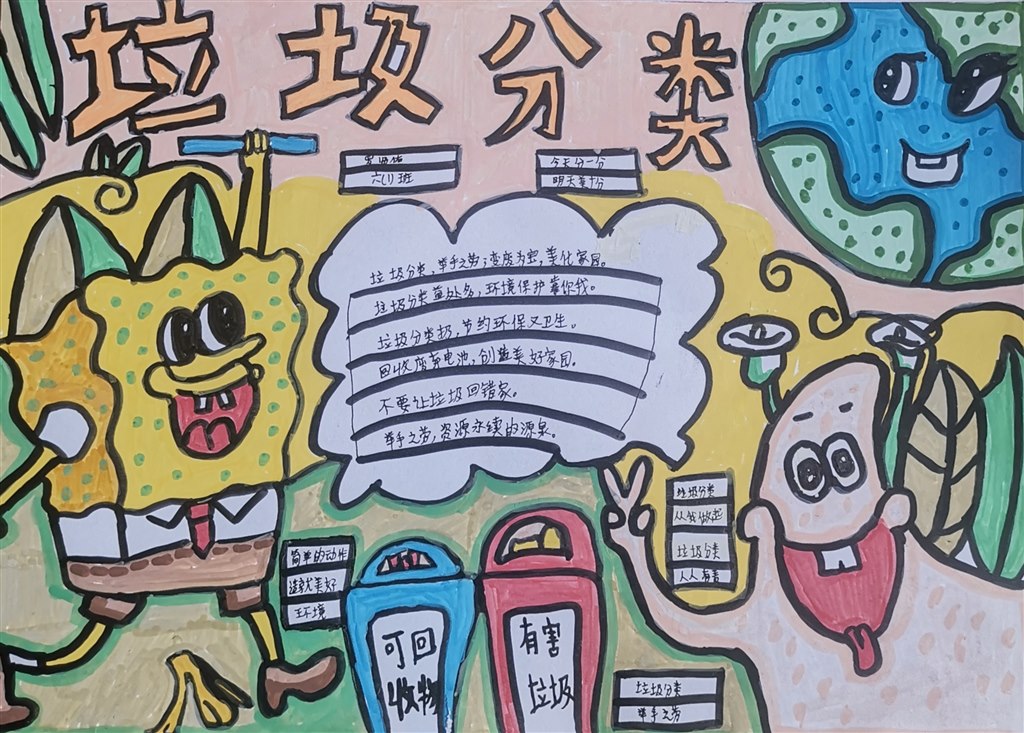 垃圾分类
六(1)班
今天分一分
明天美十分
垃圾分类,举手之劳;变废为宝,美化家园。
垃圾分类益处多,环境保护靠你我。
垃圾分类拐,节约环保又卫生。
回收废弃电池,创造美好家园。
不要让垃圾回错家。
举手之劳,资源永续的源泉。
垃圾分类
从我做起
垃圾分类
人人有责
简单的动作
造就美好
环境
可回
收物
有害
垃圾
垃圾分类
举手之劳